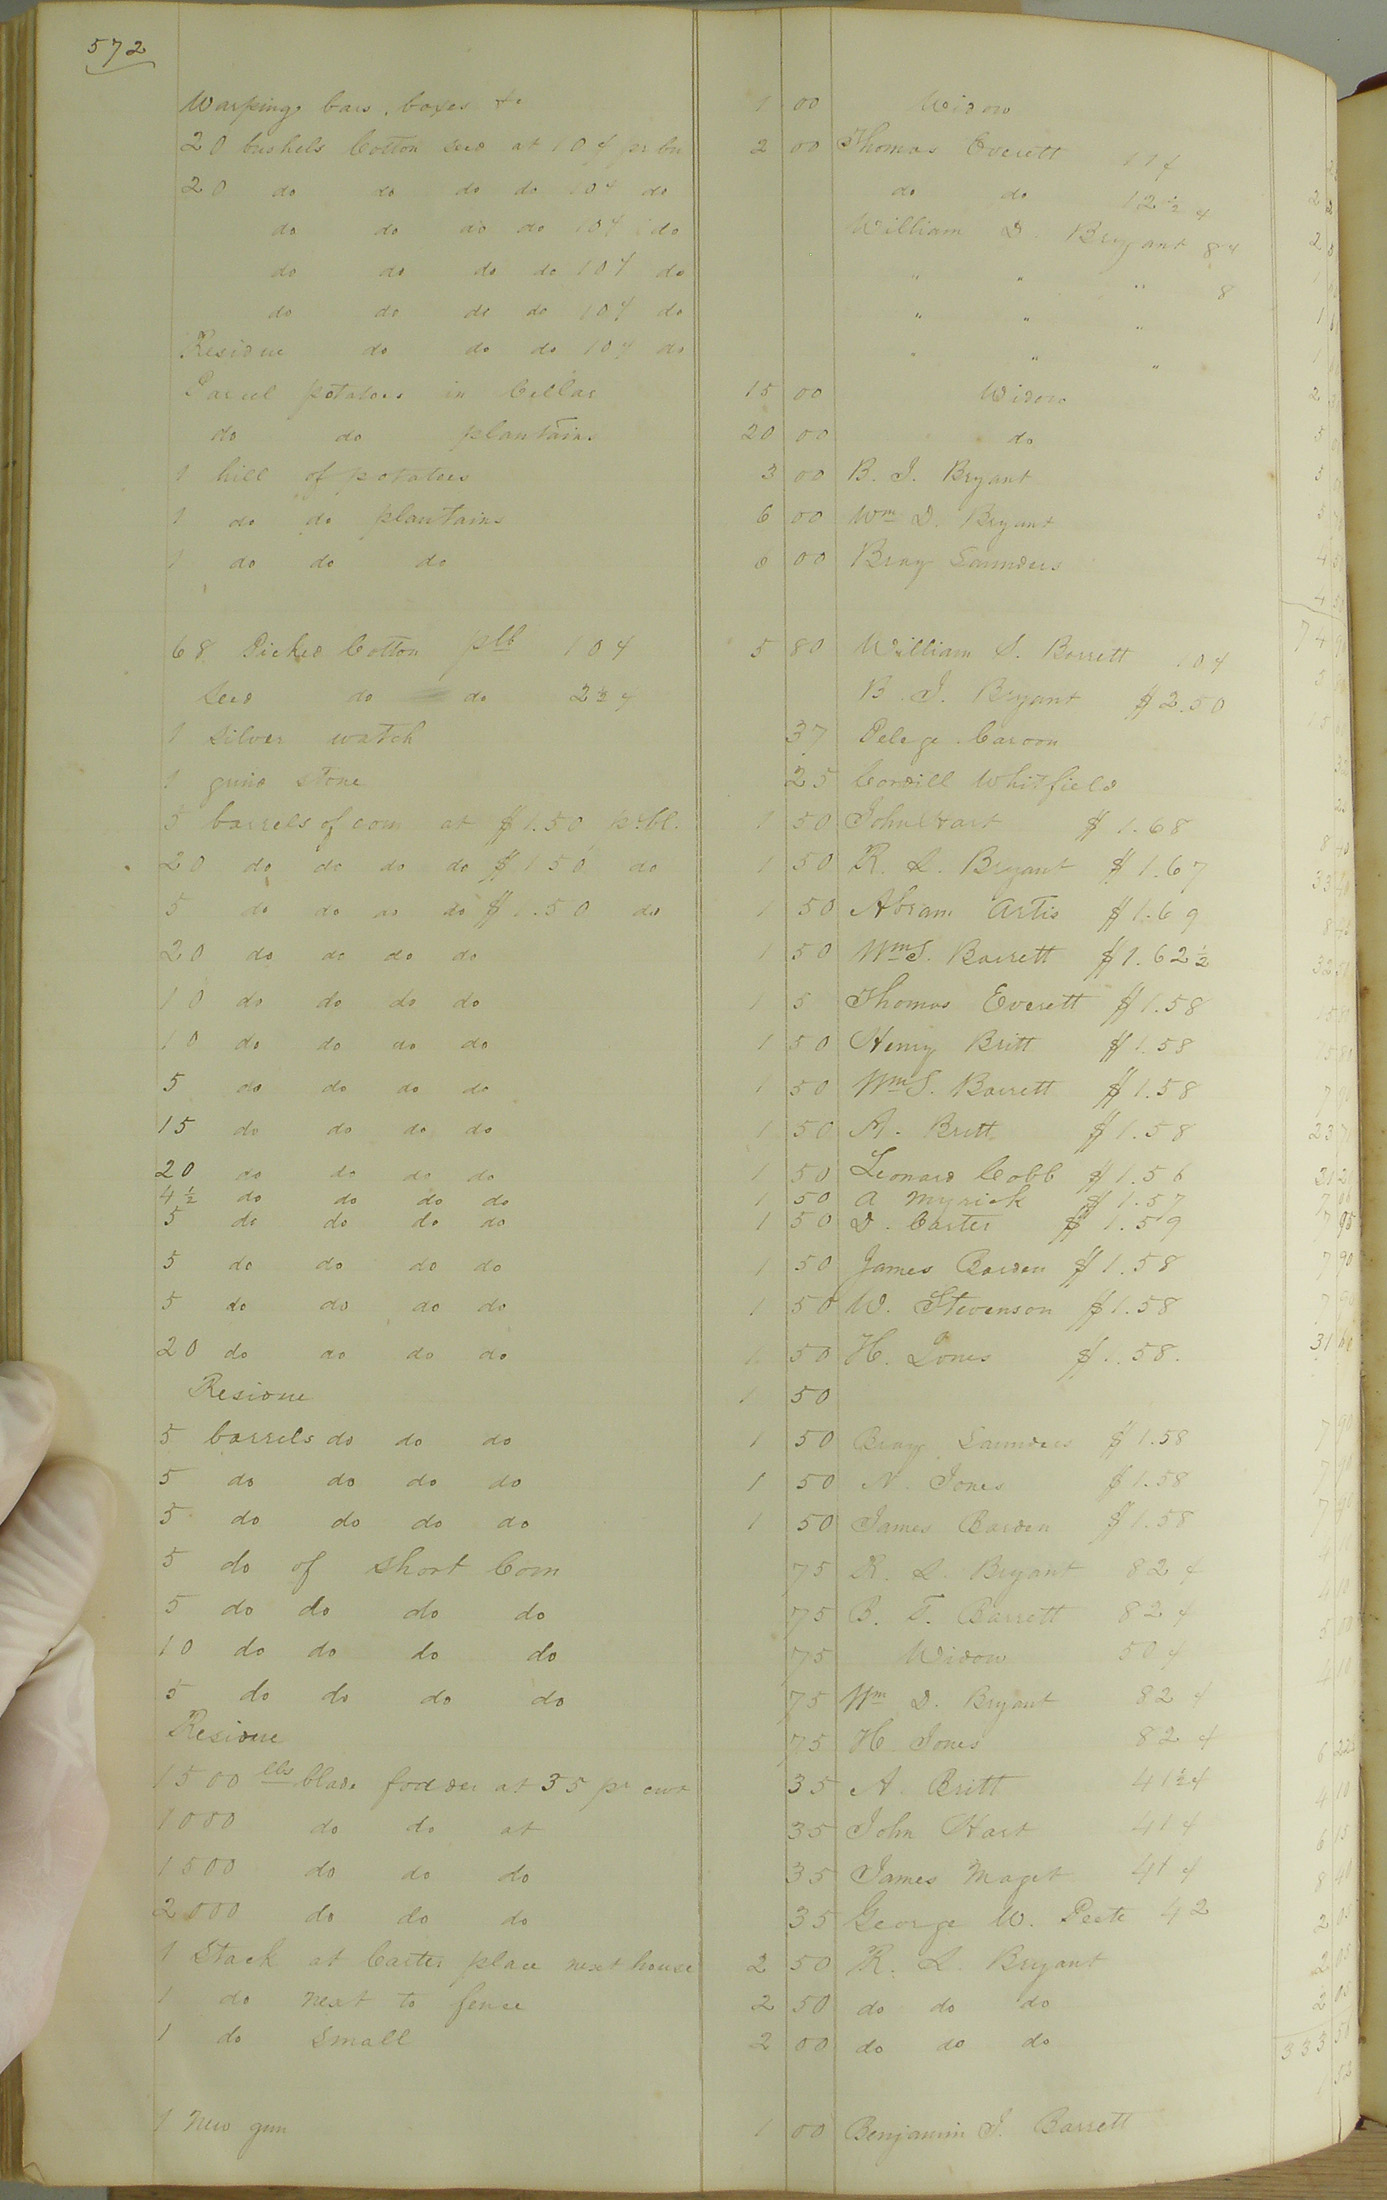 572
Warping bars, boxes &c 1 00 Widow
20 bushels Cotton seed at 10 ¢ pr bu 2 00 Thomas Everett 11 ¢
20 do do do do 10 ¢ do do do 12 ½ ¢ 2
do do do do 10 ¢ do William D. Bryant 8 ¢ 2
do do do do 10 ¢ do " " " 8 1
do do do do 10 ¢ do " " " 1
Residue do do do 10 ¢ do " " " 1
Parcel potatoes in Cellar 15 00 Widow 2
do do plantain. 20 00 do 5
1 hill of potatoes 3 00 B. J. Bryant
1 do do plantains 6 00 Wm D. Bryant
1 do do do 8 00 Bray Saunders 4
4
68 Picked Cotton plb 10 ¢ 5 80 William S. Barrett 10 ¢ 74
Seed do do 2 ½ ¢ B. J. Bryant $2.50
1 Silver watch 37 Pelege
1 grind stone 25 Whitfield
5 barrels of corn at $1.50 pr bl. 1 50 John Hart $1.68 8
20 do do do do $1.50 do 1 50 R. L. Bryant $1.67 33
5 do do do do $1.50 do 1 50 Abram Artis $1.69 8
20 do do do do 1 50 Wm S. Barrett $1.62 ½ 32
10 do do do do 1 5 Thomas Everett $1.58 15
10 do do do do 1 50 Henry Britt $1.58 15
5 do do do do 1 50 Wm S. Barrett $1.58 7
15 do do do do 1 50 A. Britt $1.58 23
20 do do do do 1 50 Leonard Cobb $1.56 31 2
4 ½ do do do do 1 50 A Myrick $1.57 7 06
5 do do do do 1 50 D. Carter $1.59 7 95
5 do do do do 1 50 James Barden $1.58 7 90
5 do do do do 1 50 W. Stevenson $1.58 7
20 do do do do 1 50 H. Jones $1.58. 31
Residue 1 50
5 barrels do do do 1 50 Bray Saunders $1.58 7 90
5 do do do do 1 50 N. Jones $1.58 7
5 do do do do 1 50 James Barden $1.58 7
5 do of short Corn 75 R. L. Bryant 82 ¢ 4
5 do do do do 75 B. T. Barrett 82 ¢ 4 10
10 do do do do 75 Widow 50 ¢ 5 00
5 do do do do 75 Wm D. Bryant 82 ¢ 4 10
Residue 75 H Jones 82 ¢
1500 lbs blade fodder at 35 pr cwt 35 A. Britt 41 ½ ¢ 6 22
1000 do do at 35 John Hart 41 ¢ 4 10
1500 do do do 35 James Maget 41 ¢ 6 15
2000 do do do 35 George W. Peete 42 8 40
1 Stack at Carter place next house 2 50 R. L. Bryant 2 05
1 do next to fence 2 50 do do do 2 05
1 do Small 2 00 do do do 2 05
333 58
1 New gun 1 00 Benjamin J. Barrett 1